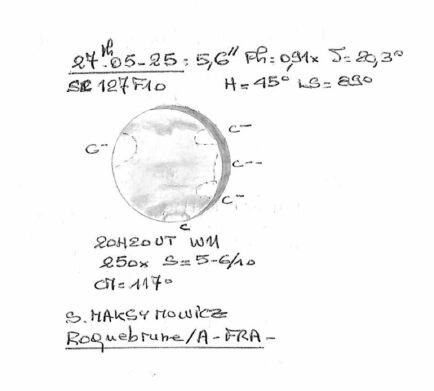 27th.05-25: 5,6" Ph=0,91x
SC 127F10 H=45° LS=89°
C-
C-
C--
C-
C
20H20UT W11
250x S=5-6/10
CM=117°
S.MAKSYMOWICZ
Roquebrune/A-FRA-